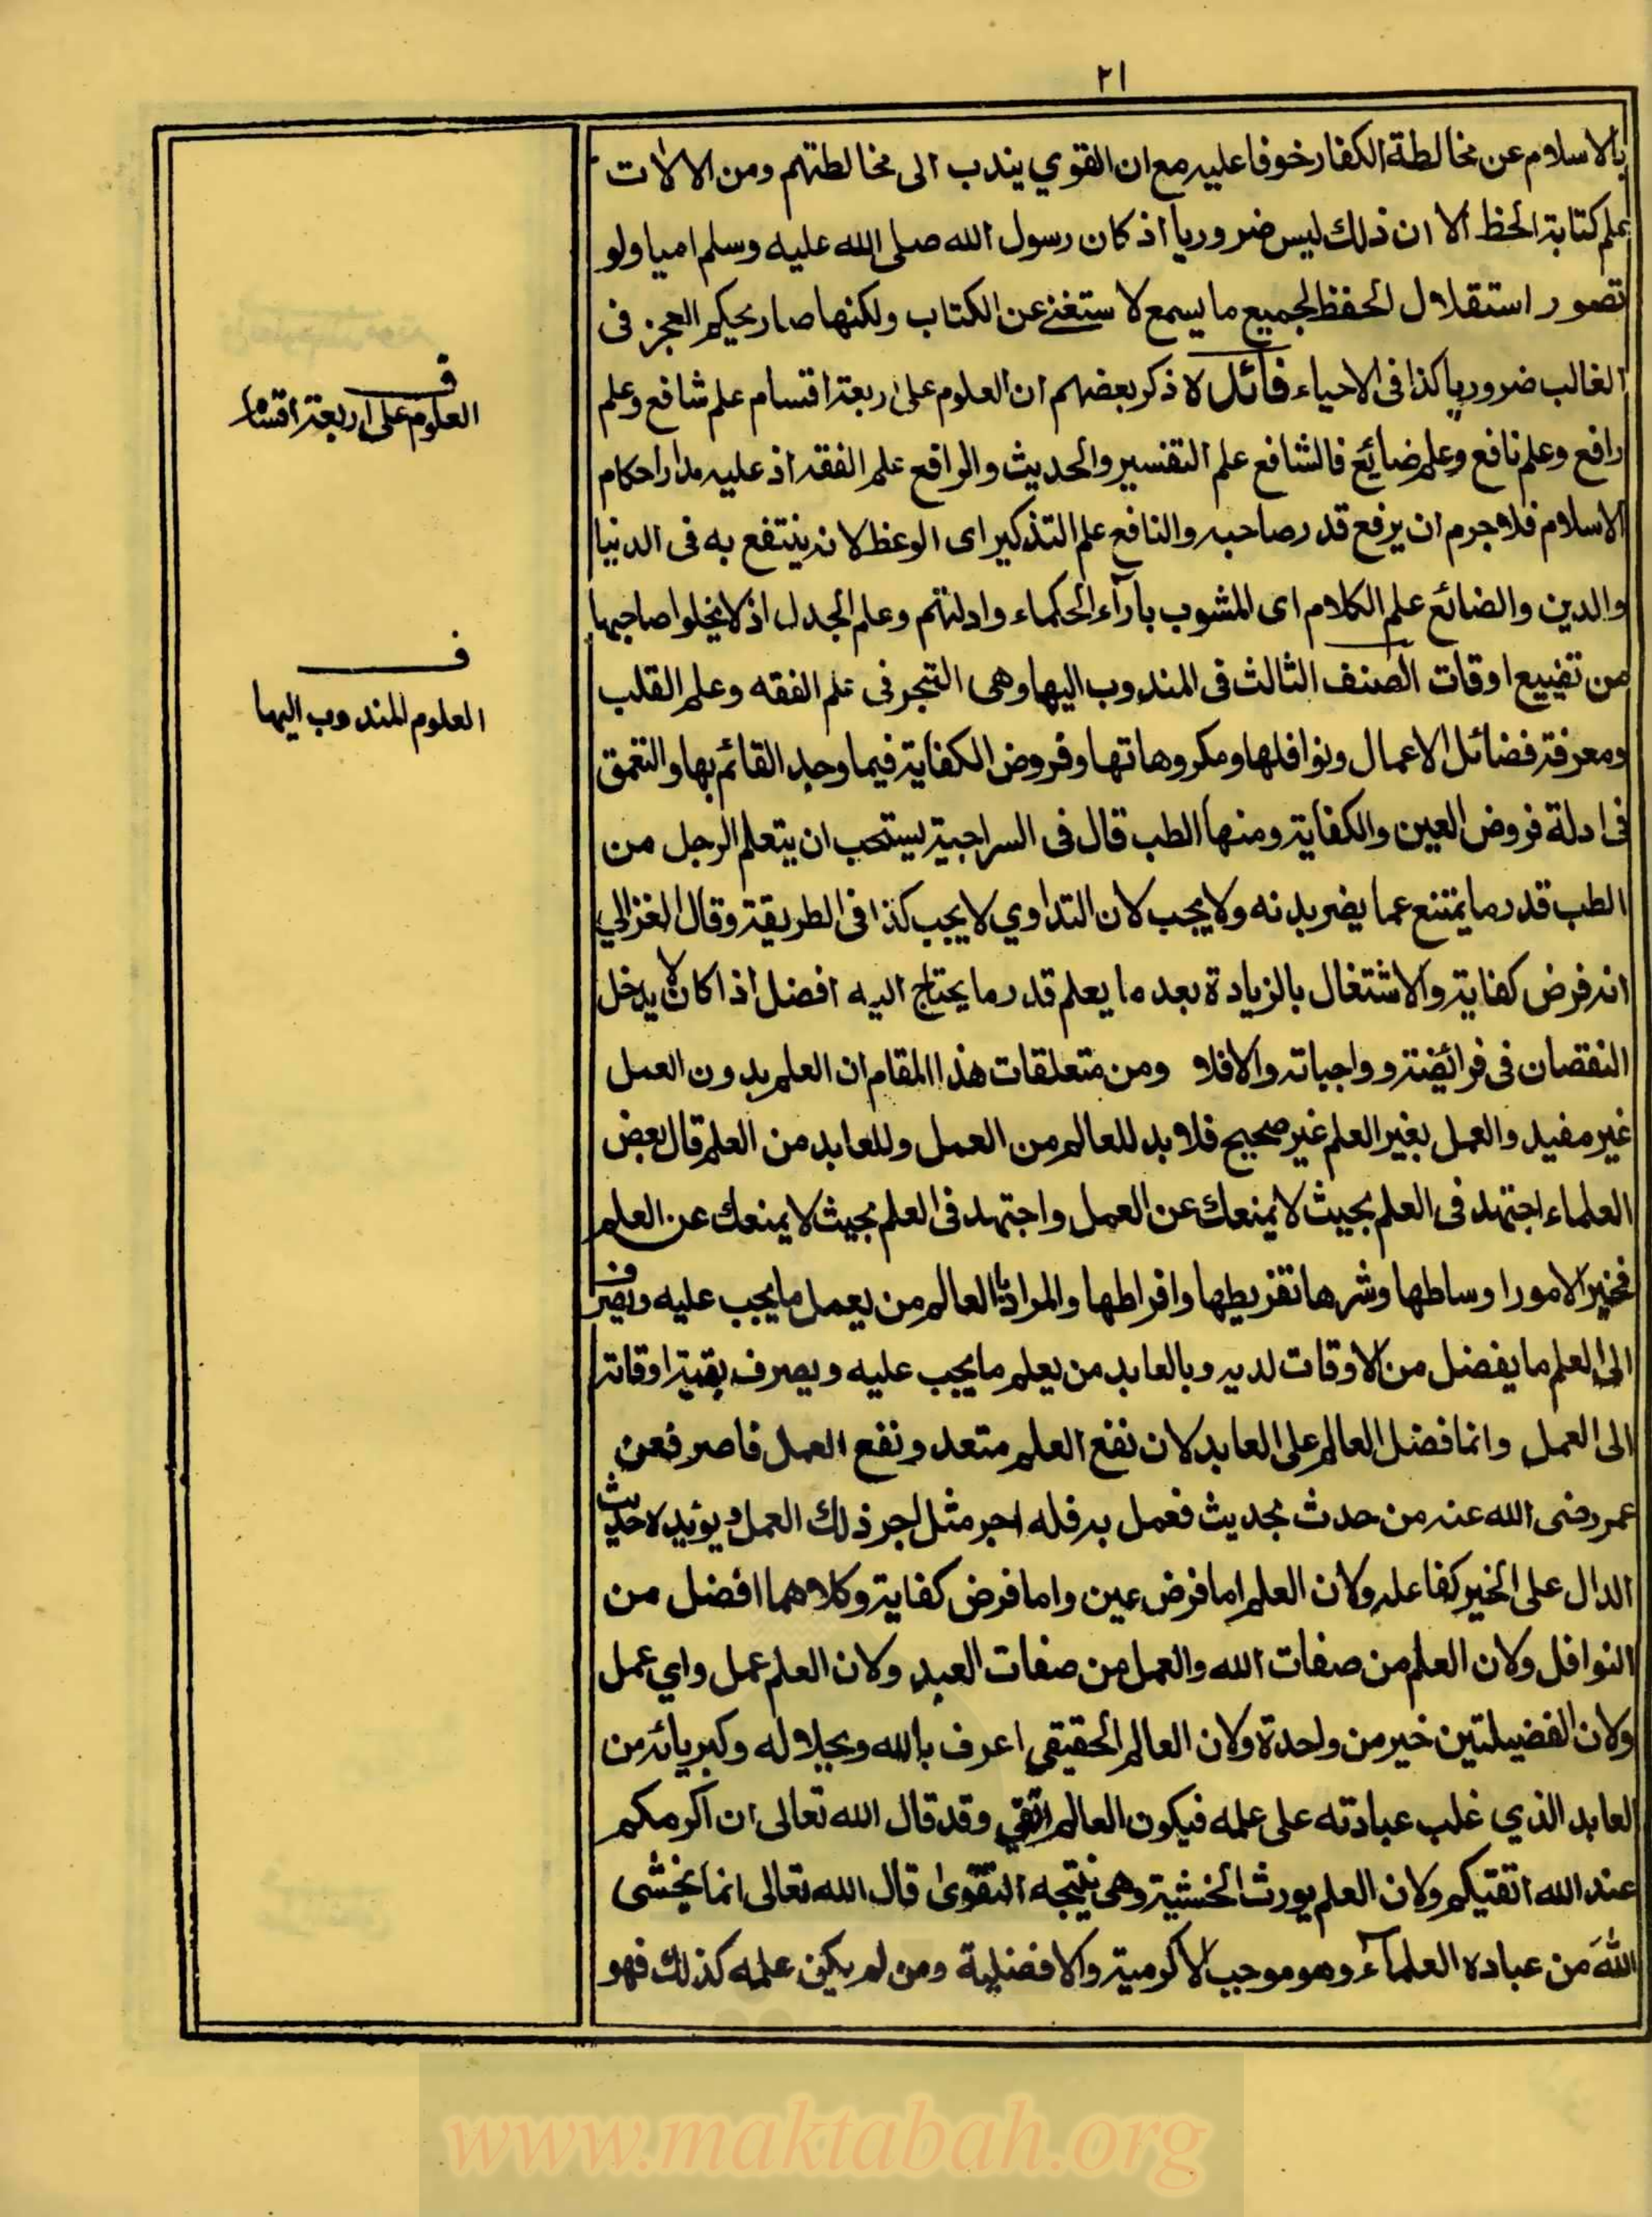 ٢١
بالاسلام عن مخالطة الكفار خوفا عليه مع ان القوي يندب الى مخالطتهم ومن الالات
علم كتابة الخط الا ان ذلك ليس ضروريا اذ كان رسول الله صلى الله عليه وسلم اميا ولو
تصور استقلال الحفظ لجميع ما يسمع لاستغنى عن الكتاب ولكنها صار بحكم العجز فى
الغالب ضروريا كذا فى الاحياء فائدة ذكر بعضهم ان العلوم على اربعة اقسام علم شافع وعلم
رافع وعلم نافع وعلم ضايع فالشافع علم التفسير والحديث والرافع علم الفقه اذ عليه مدار احكام
الاسلام فلا جرم ان يرفع قدر صاحبه والنافع علم التذكير اى الوعظ لانه ينتفع به فى الدنيا
والدين والضائع علم الكلام اى المشوب بارآء الحكماء وادلتهم وعلم الجدل اذ لا يخلوا صاحبها
من تضييع اوقات الصنف الثالث فى المندوب اليها وهى التبحر فى علم الفقه وعلم القلب
ومعرفة فضائل الاعمال ونوافلها ومكروهاتها وفروض الكفاية فيما وجد القائم بها والتعمق
فى ادلة فروض العين والكفاية ومنها الطب قال فى السراجية يستحب ان يتعلم الرجل من
الطب قدر ما يمتنع عما يضر بدنه ولا يجب لان التداوي لا يجب كذا فى الطريقة وقال الغزالي
انه فرض كفاية والاشتغال بالزيادة بعد ما يعلم قدر ما يحتاج اليه افضل اذا كان لا يدخل
النقصان فى فرائضه وواجباته والافلا ومن متعلقات هذا المقام ان العلم بدون العمل
غير مفيد والعمل بغير العلم غير صحيح فلا بد للعالم من العمل وللعابد من العلم قال بعض
العلماء اجتهد فى العلم بحيث لا يمنعك عن العمل واجتهد فى العلم بحيث لا يمنعك عن العلم
فخير الامور اوساطها وشرها تفريطها وافراطها والمراد بالعالم من يعمل ما يجب عليه ويصرف
الى العلم ما يفضل من الاوقات لديه وبالعابد من يعلم ما يجب عليه ويصرف بقية اوقاته
الى العمل وانما فضل العالم على العابد لان نفع العلم متعد ونفع العمل قاصر فعن
عمر رضى الله عنه من حدث بحديث فعمل به فله اجر مثل اجر ذلك العمل ويؤيده حديث
الدال على الخير كفاعله ولان العلم اما فرض عين واما فرض كفاية وكلاهما افضل من
النوافل ولان العلم من صفات الله والعمل من صفات العبد ولان العلم عمل واي عمل
ولان الفضيلتين خير من واحدة ولان العالم الحقيقي اعرف بالله وبجلاله وكبريائه من
العابد الذي غلب عبادته على علمه فيكون العالم اتقي وقد قال الله تعالى ان اكرمكم
عند الله اتقيكم ولان العلم يورث الخشية وهى نتيجه التقوى قال الله تعالى انما يخشى
الله من عباده العلمآء وهو موجب الاكرمية والافضلية ومن لم يكن علمه كذلك فهو
ف
العلوم على اربعة اقسام
ف
العلوم المندوب اليها
www.maktabah.org